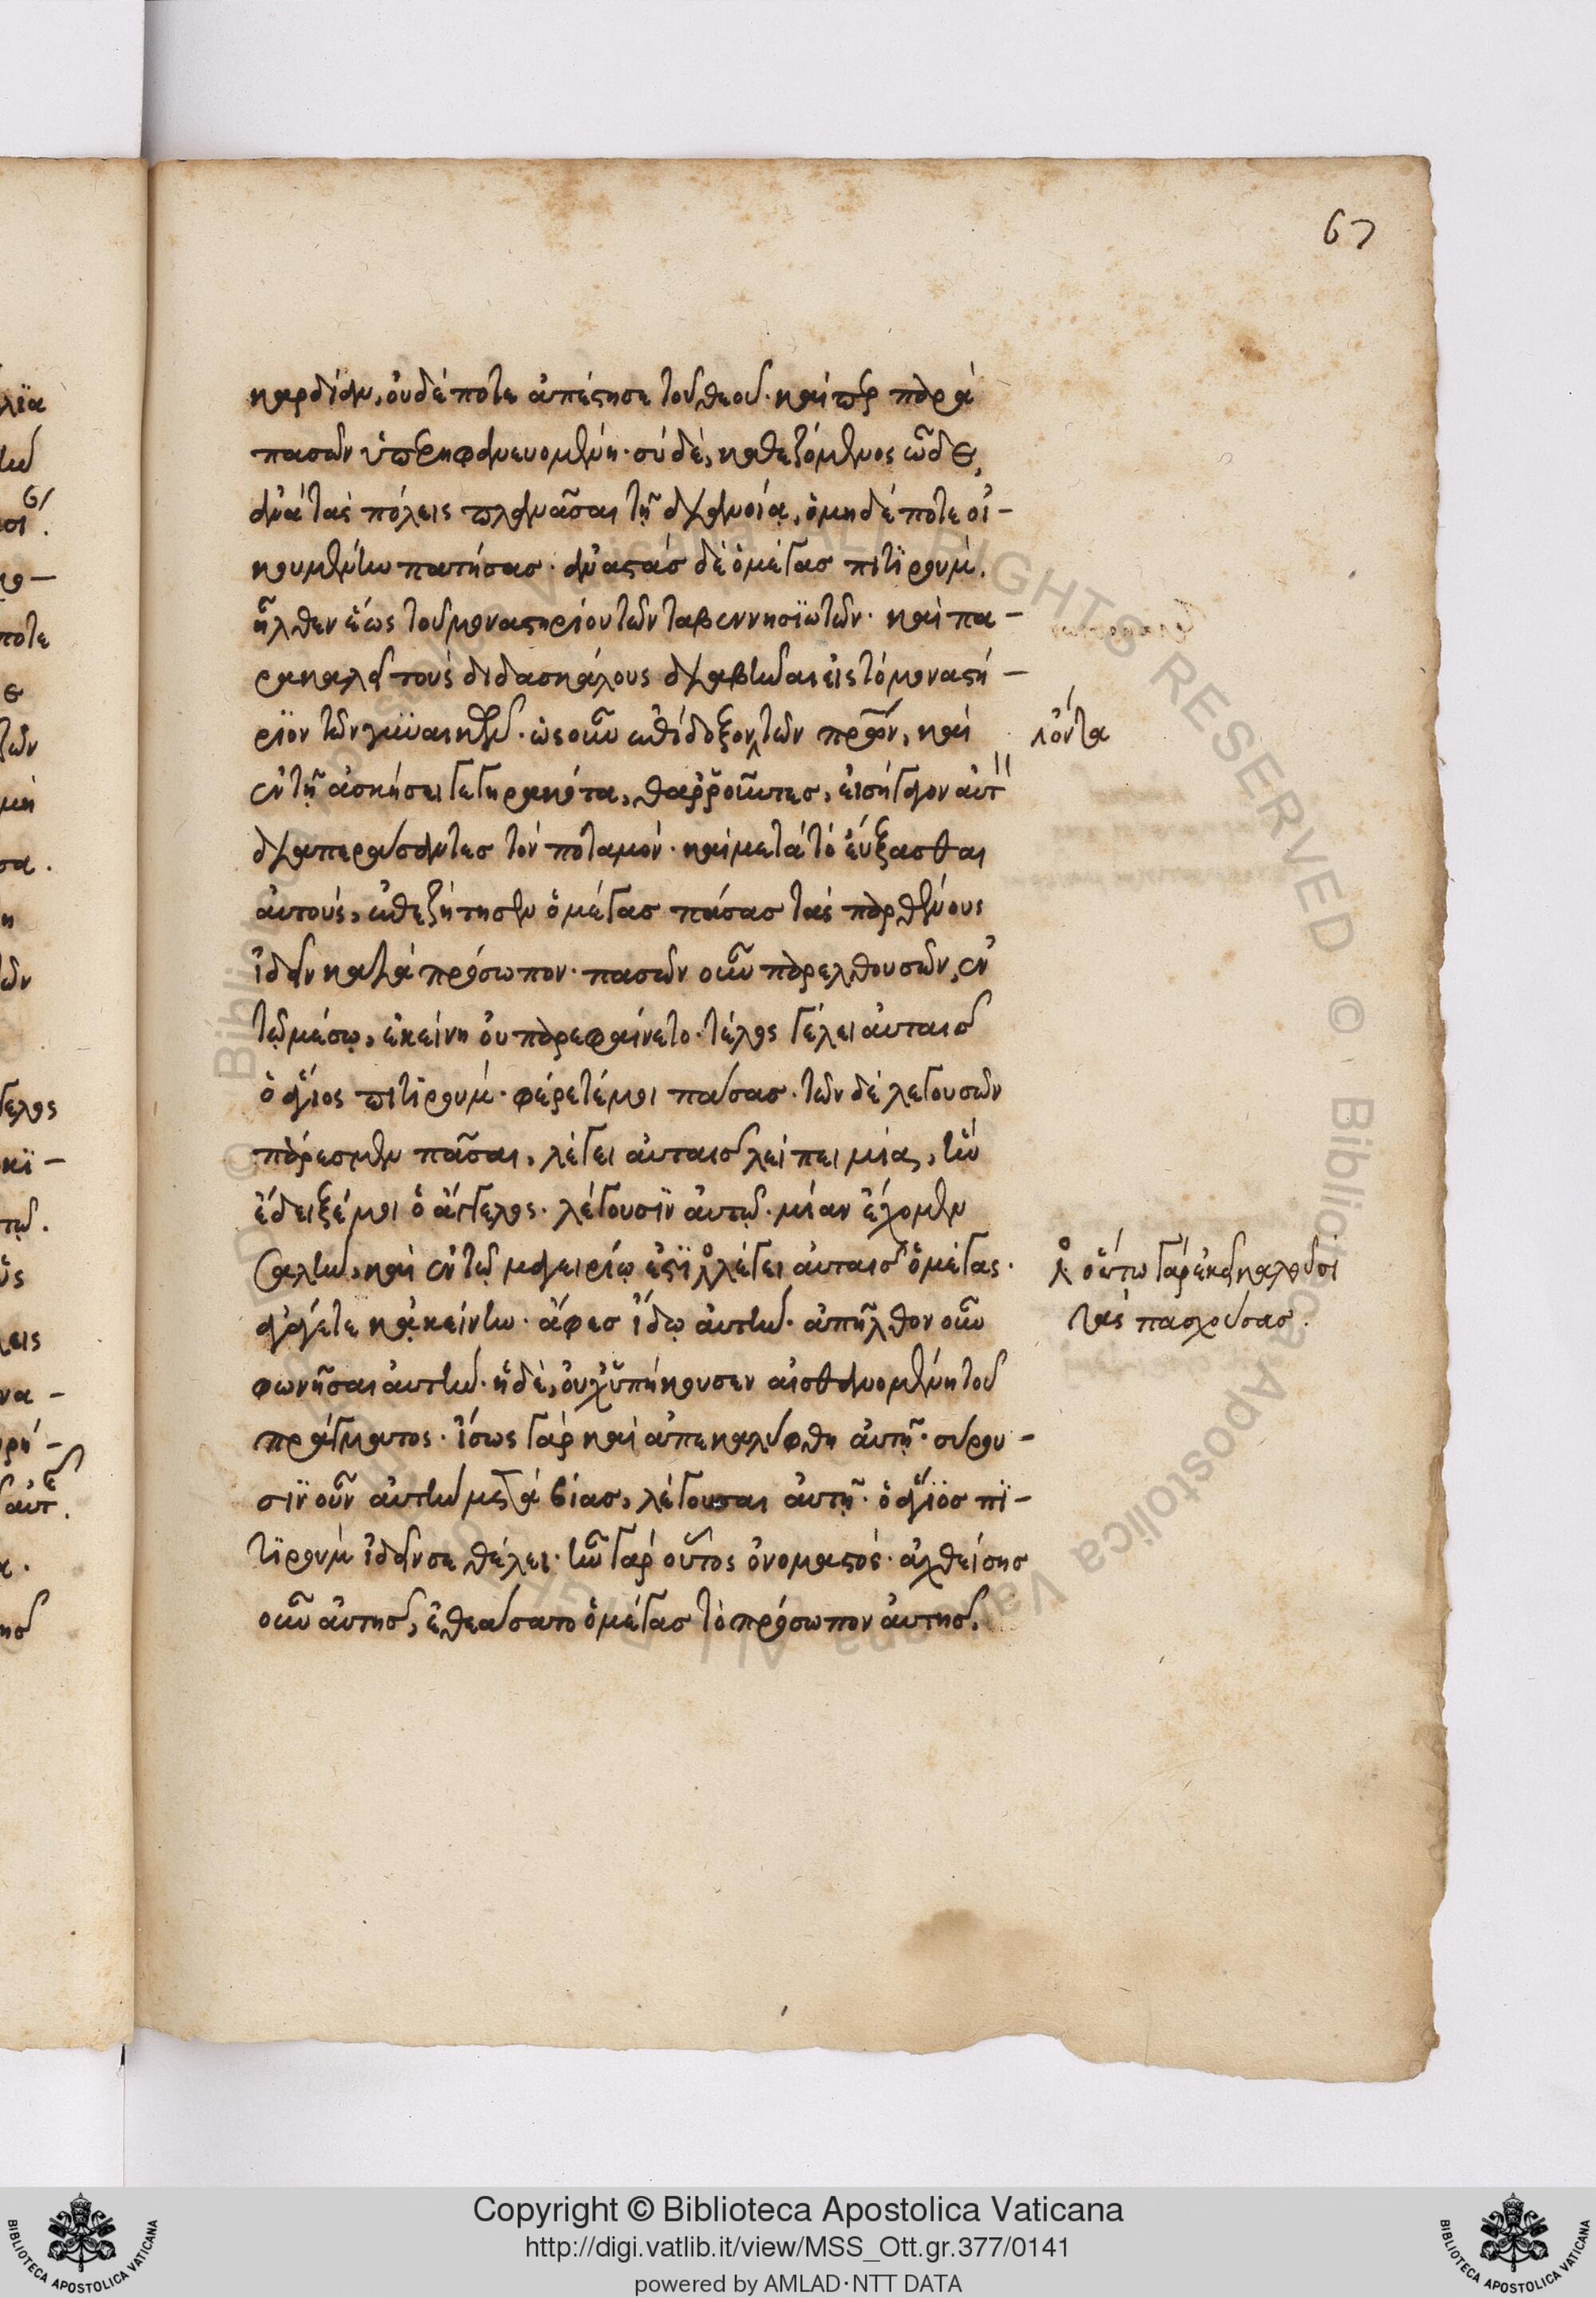 67
καρδίαν, οὐδέποτε ἀπέστησε τοῦ θεοῦ. καίπερ παρὰ
πασῶν ὑπερηφανευομένη. σὺ δὲ, καθεζόμενος ὧδε,
ἀνὰ τὰς πόλεις πλανᾶσαι τῇ διανοία, ὁ μηδέποτε οἰ-
κουμένην πατήσας. ἀναστὰς δὲ ὁ μέγας πιτϊρούμ.
ἦλθεν ἕως τοῦ μοναστηρίου τῶν ταβεννησϊωτῶν. καὶ πα-
ρακαλεῖ τοὺς διδασκάλους διαβῆναι εἰς τὸ μοναστή-
ρϊον τῶν γυναικῶν. ὡς οὖν ἐπίδοξον τῶν πρων, καὶ
λόντα
ἐν τῇ ἀσκήσει γεγηρακότα, θαρροῦντες, εἰσήγαγον αὐτ
διαπεράσαντες τὸν ποταμόν. καὶ μετὰ τὸ εὔξασθαι
αὐτούς, ἐπεζήτησεν ὁ μέγας πάσας τὰς παρθένους
ἰδεῖν κατὰ πρόσωπον. πασῶν οὖν παρελθουσῶν, ἐν
τῷ μέσῳ, ἐκείνη οὐ παρεφαίνετο. τέλος λέγει αὐταῖς
ὁ ἅγιος πιτϊρούμ. φέρετέ μοι πάσας. τῶν δὲ λεγουσῶν
πάρεσμεν πᾶσαι, λέγει αὐταῖς λείπει μία, ἣν
ἔδειξέ μοι ὁ ἄγγελος. λέγουσϊν αὐτῷ. μίαν ἔχομεν
σαλὴν, καὶ ἐν τῷ μαγειρίῳ ἐστϊ λέγει αὐταῖς ὁ μέγας.
οὕτω γὰρ ἐκεῖ καλοῦσϊ
τὰς πασχούσας.
ἀγάγετε κἀκείνην. ἄφες ἴδω αὐτήν. ἀπῆλθον οὖν
φωνῆσαι αὐτήν. ἡ δὲ, οὐχ ὑπήκουσεν αἰσθανομένη τοῦ
πράγματος. ἴσως γὰρ καὶ ἀπεκαλύφθη αὐτῇ. σύρου-
σϊν οὖν αὐτὴν μετὰ βίας, λέγουσαι αὐτῇ. ὁ ἅγϊος πϊ-
τϊροὺμ ἰδεῖν σε θέλει. ἦν γὰρ οὗτος ὀνομαστός. ἀχθείσης
οὖν αὐτῆς, ἐθεάσατο ὁ μέγας τὸ πρόσωπον αὐτῆς.
Copyright © Biblioteca Apostolica Vaticana
http://digi.vatlib.it/view/MSS_Ott.gr.377/0141
powered by AMLAD·NTT DATA
BIBLIOTECA APOSTOLICA VATICANA
BIBLIOTECA APOSTOLICA VATICANA